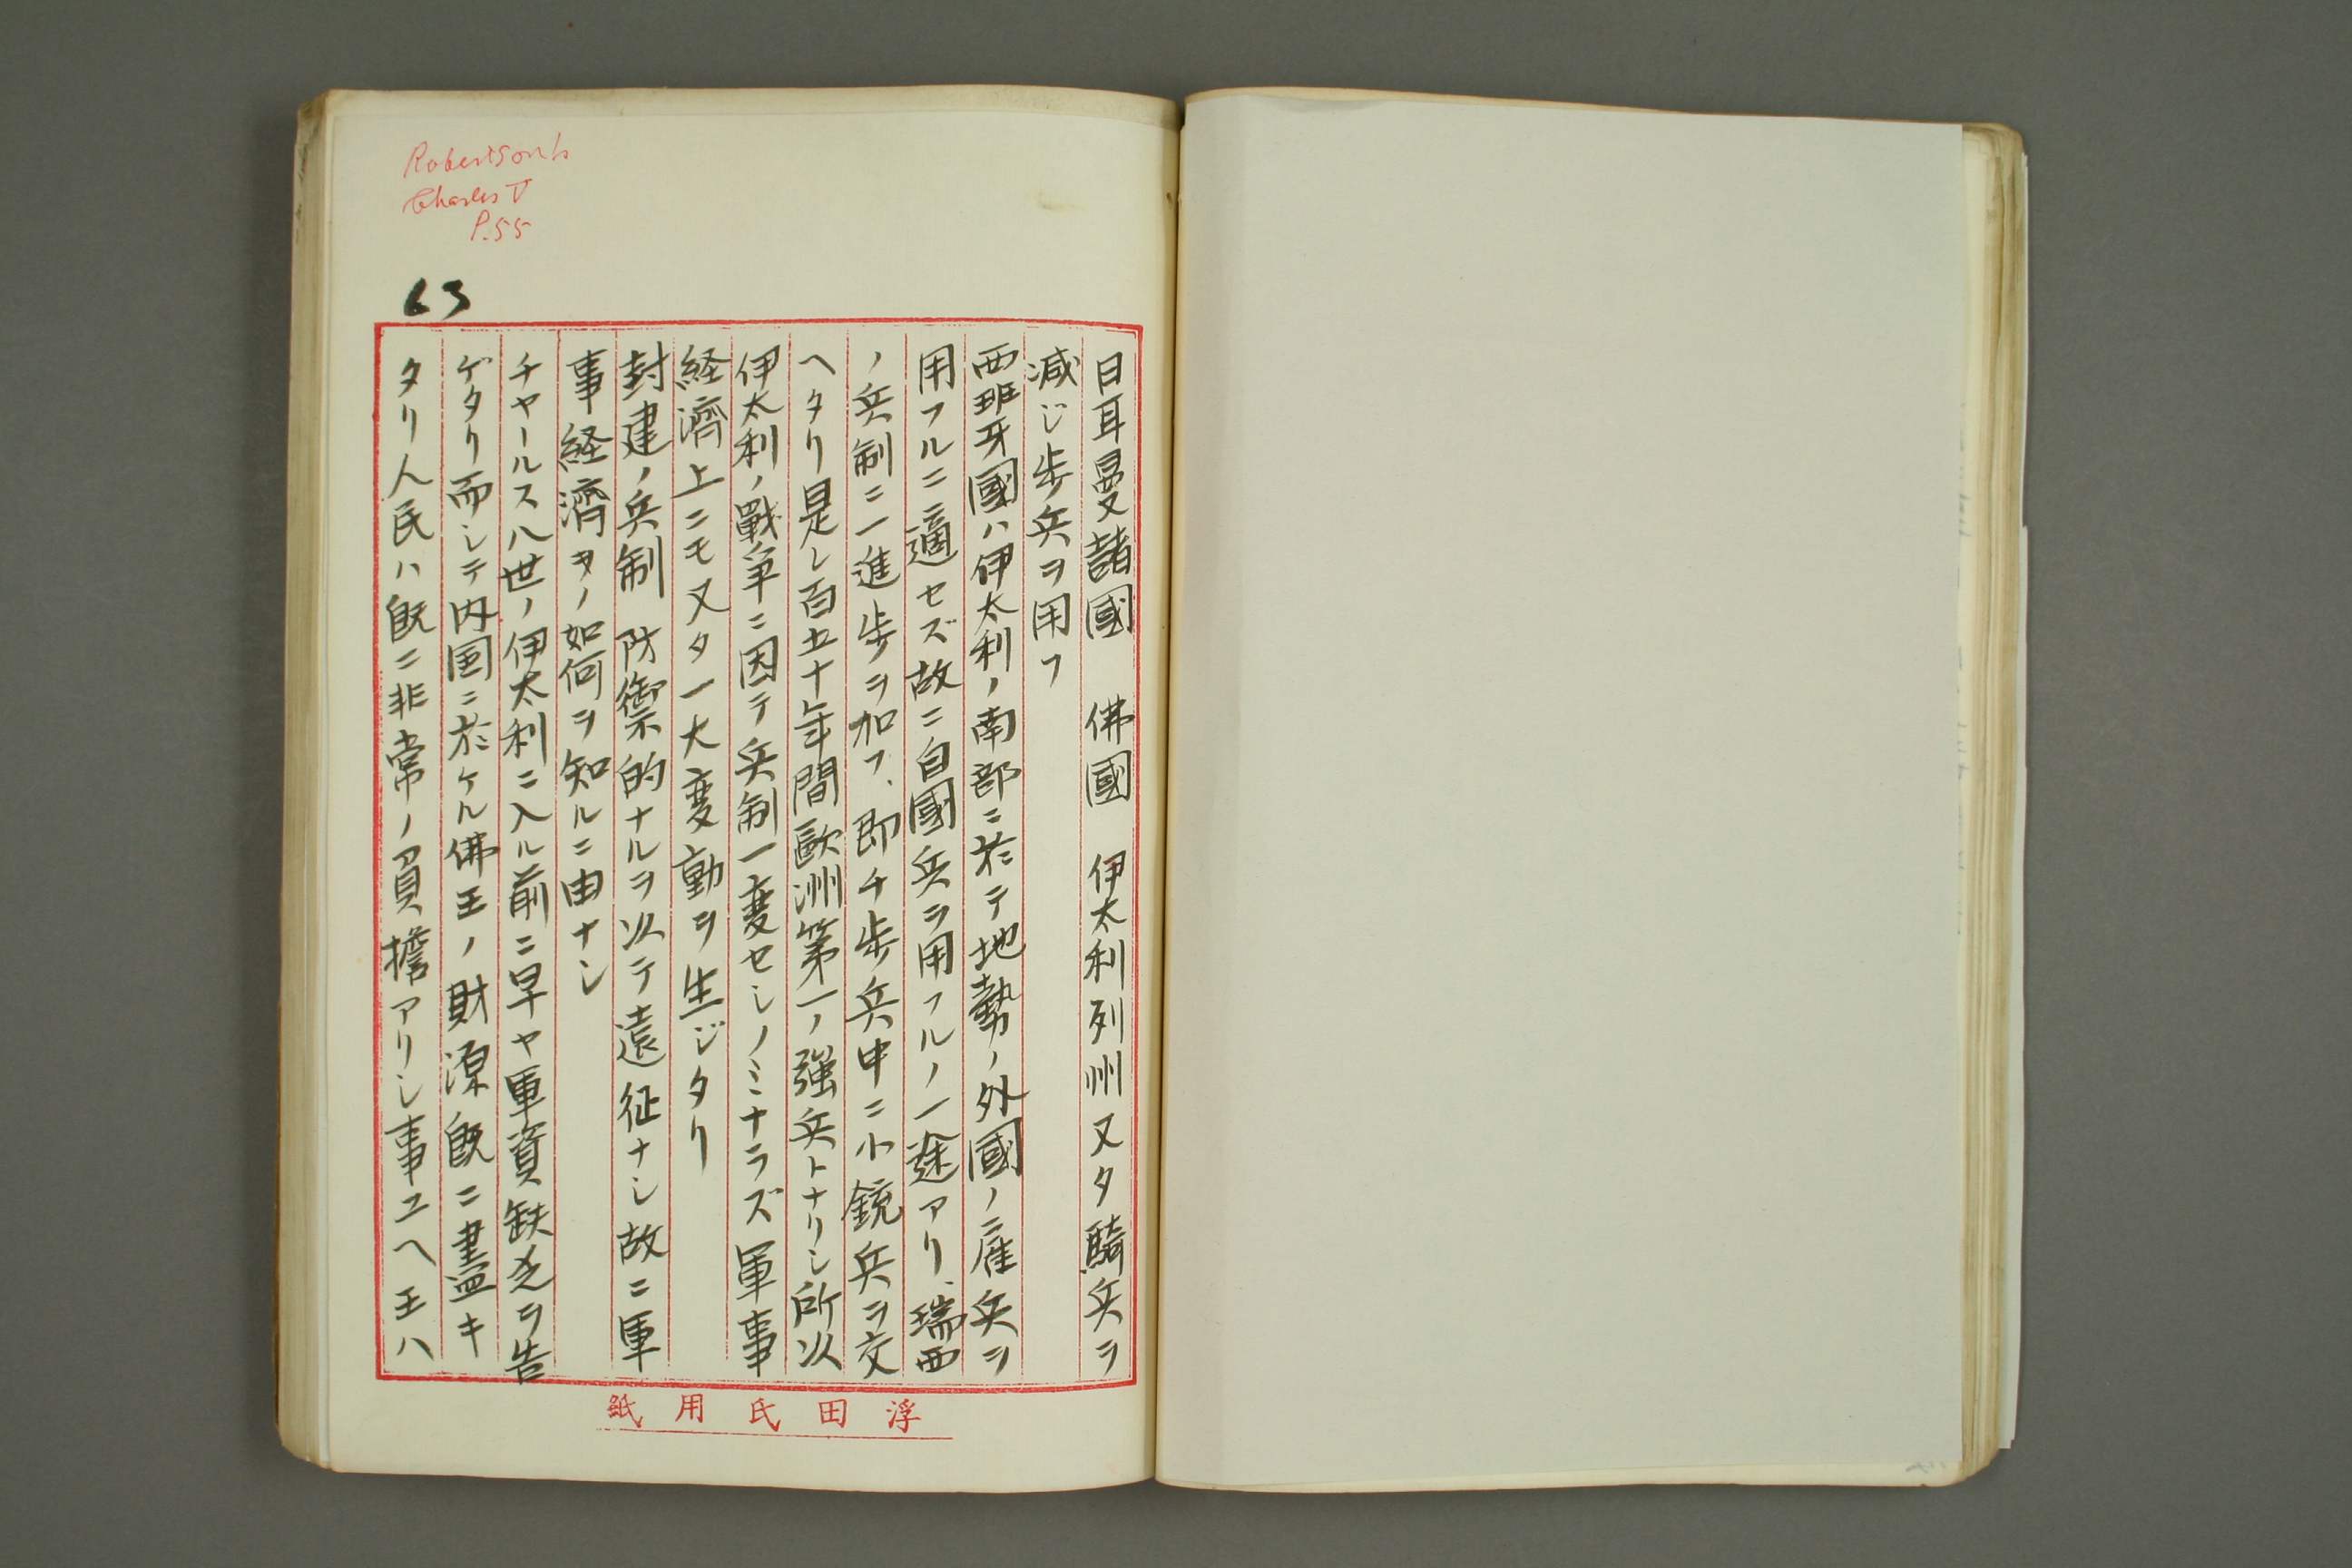 Robertson's
Charles V
P.55
63
日耳曼諸國　佛國　伊太利列州又タ騎兵ヲ
減ジ歩兵ヲ用フ
西班牙國ハ伊太利ノ南部ニ於テ地勢ノ外國ノニ雇兵ヲ
用フルニ適セズ故ニ自國兵ヲ用フルノ一途アリ、瑞西
ノ兵制ニ一進歩ヲ加フ、即チ歩兵中ニ小銃兵ヲ交
ヘタリ是レ百五十年間歐洲第一ノ強兵トナリシ所以
伊太利ノ戰争ニ因テ兵制一變セシノミナラズ軍事
経濟上ニモ又タ一大変動ヲ生ジタリ
封建ノ兵制　防禦的ナルヲ以テ遠征ナシ故ニ軍
事経濟ヲノ如何ヲ知ルニ由ナシ
チャールス八世ノ伊太利ニ入ル前ニ早ヤ軍資缺乏ヲ告
ゲタリ而シテ内国ニ於ケル佛王ノ財源既ニ盡キ
タリ人民ハ既ニ非常ノ負擔アリシ事ユヘ王ハ
浮田氏用紙